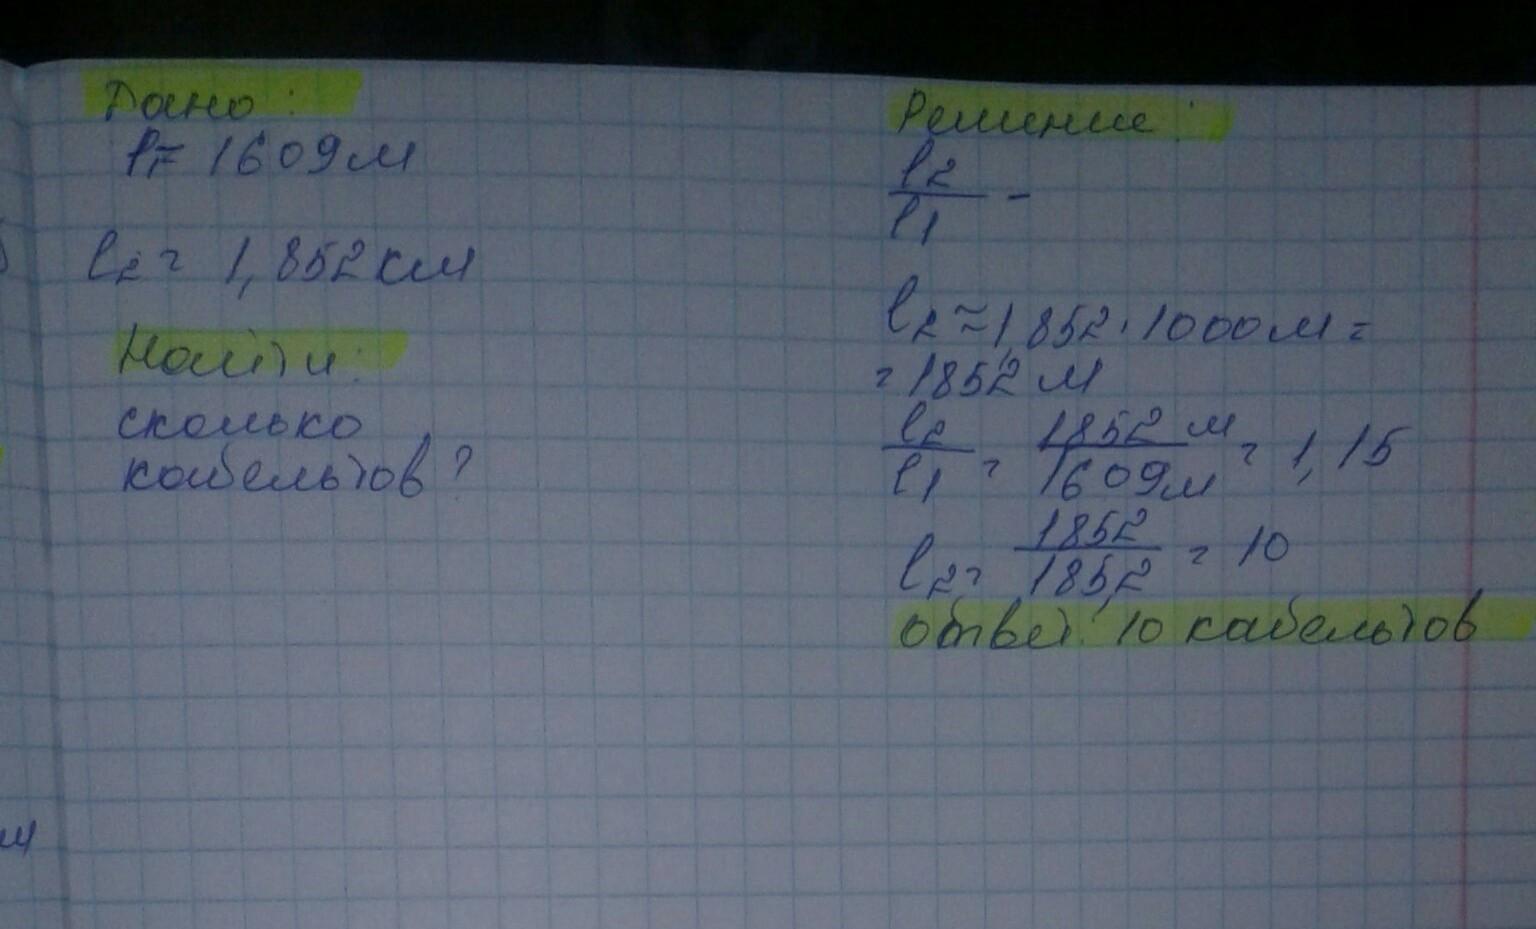 Дано:
l1 = 1609м
l2 = 1,852 км
Найти:
сколько
кабельтов?
Решение:
l2/l1 -
l2 ≈ 1,852 · 1000м =
= 1852 м
l2/l1 = 1852 м/1609м = 1,15
l2 = 1852/185,2 = 10
ответ: 10 кабельтов